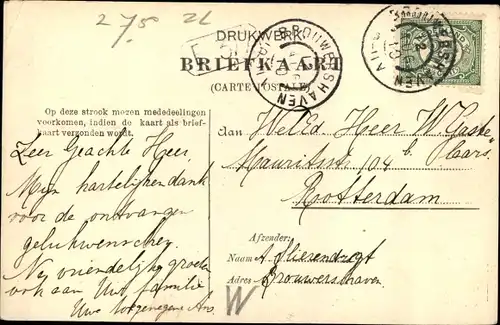 275 2L
DRUKWERK
BROUWERSHAVEN
BROUWERSHAVEN
BRIEFKAART
(CARTE POSTALE)
Op deze strook mogen mededeelingen
voorkomen, indien de kaart als brief-
kaart verzonden wordt.
Zeer Geachte Heer,
Mijn hartelijken dank
voor de ontvangen
gelukwenschen.
Nog vriendelijk groeten
ook aan Uwe familie
Uwe toegenegene
Aan WelEd Heer W.
Mauritsstr 104 b.
Rotterdam
Afzender:
Naam A.
Adres Brouwershaven
W